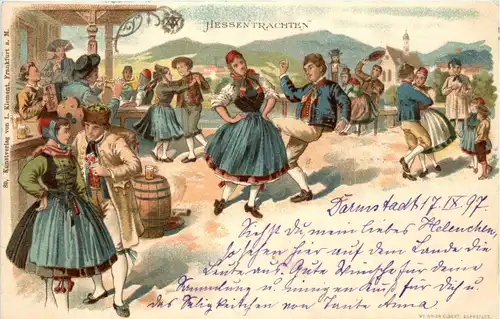 HESSENTRACHTEN
89. Kunstverlag von L. Klement, Frankfurt a. M.
Darmstadt 17. IX 97.
Siehst du mein liebes Helenchen,
so sehen hier auf dem Lande die
Leute aus. Gute Wünsche für deine
Sammlung u. innigen Kuß für dich u
des von Tante Anna.